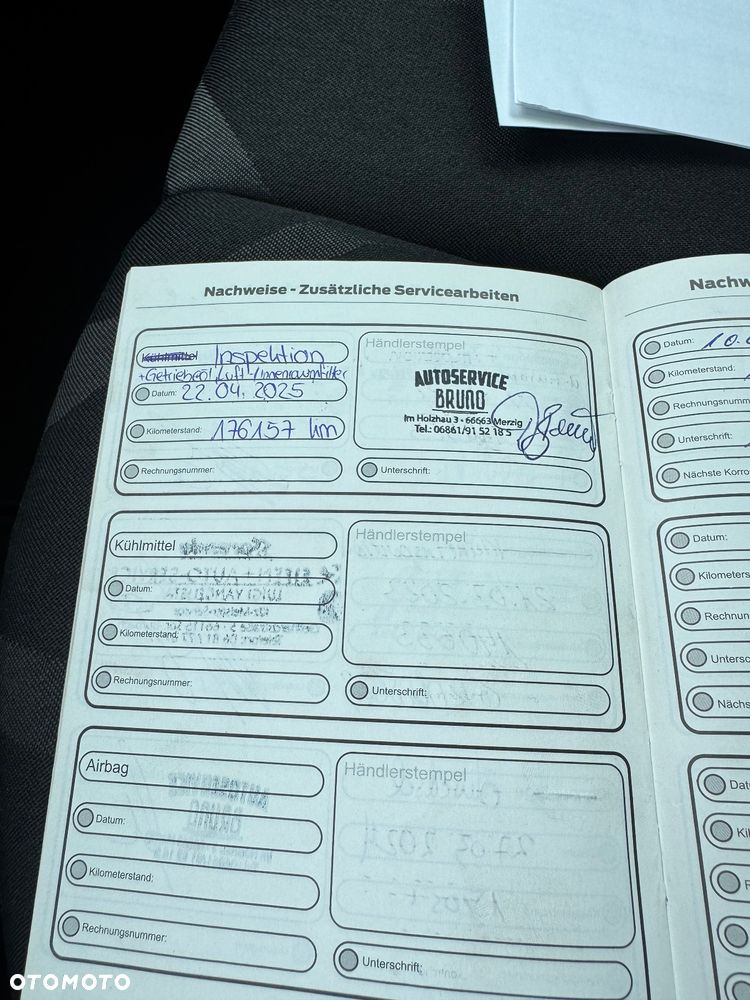 Nachweise - Zusätzliche Servicearbeiten
Kühlmittel Inspektion
+Getriebeöl, Luft-/Innenraumfilter
Datum: 22.04.2025
Kilometerstand: 176157 km
Rechnungsnummer:
Händlerstempel
AUTOSERVICE
BRUNO
Im Holzhau 3 • 66663 Merzig
Tel.: 06861/91 52 18 5
Unterschrift:
Kühlmittel
Datum:
Kilometerstand:
Rechnungsnummer:
Händlerstempel
Unterschrift:
Airbag
Datum:
Kilometerstand:
Rechnungsnummer:
Händlerstempel
Unterschrift:
Nachw
Datum: 10.
Kilometerstand:
Rechnungsnumm
Unterschrift:
Nächste Korro
Datum:
Kilometers
Rechnun
Untersc
Nächs
Dat
Ki
OTOMOTO